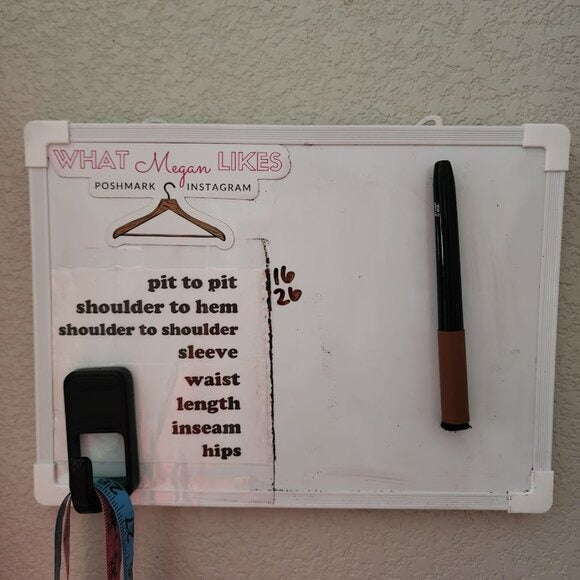 WHAT Megan LIKES
POSHMARK INSTAGRAM
pit to pit 16
shoulder to hem 26
shoulder to shoulder
sleeve
waist
length
inseam
hips